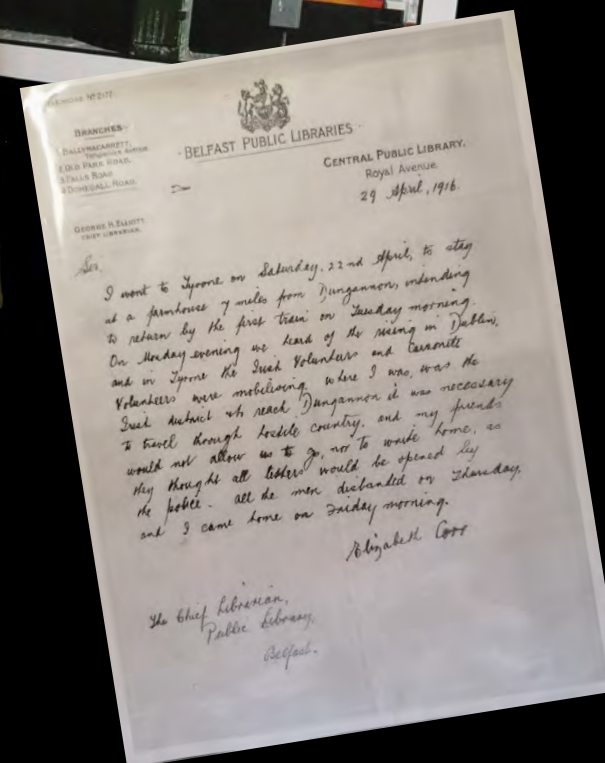 No 2177
BRANCHES
BALLYMACARRETT,
TEMPLEMORE AVENUE
OLD PARK ROAD.
FALLS ROAD
DONEGALL ROAD.
GEORGE H. ELLIOTT,
CHIEF LIBRARIAN.
BELFAST PUBLIC LIBRARIES
CENTRAL PUBLIC LIBRARY,
Royal Avenue.
29 April, 1916.
Sir,
I went to Tyrone on Saturday, 22nd April, to stay
at a farmhouse 7 miles from Dungannon, intending
to return by the first train on Tuesday morning.
On Monday evening we heard of the rising in Dublin,
and in Tyrone the Irish Volunteers and Carsonite
Volunteers were mobilising. Where I was, was the
Irish district & to reach Dungannon it was necessary
to travel through hostile country, and my friends
would not allow us to go, nor to write home, as
they thought all letters would be opened by
the police. All the men disbanded on Thursday,
and I came home on Friday morning.
Elizabeth Corr
The Chief Librarian,
Public Library,
Belfast.